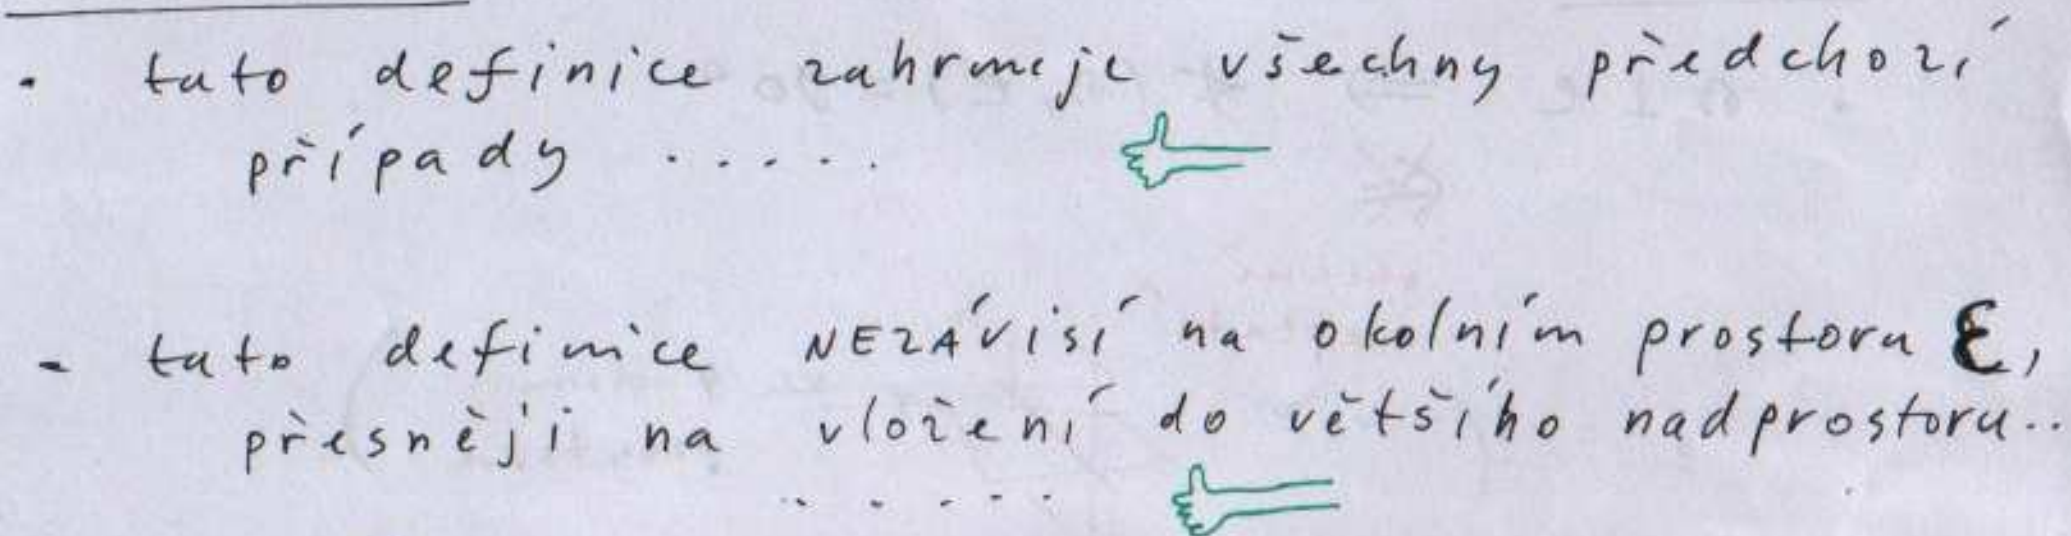 . tato definice zahrnuje všechny předchozí
případy .....
- tato definice NEZÁVISÍ na okolním prostoru E,
přesněji na vložení do většího nadprostoru..
.....